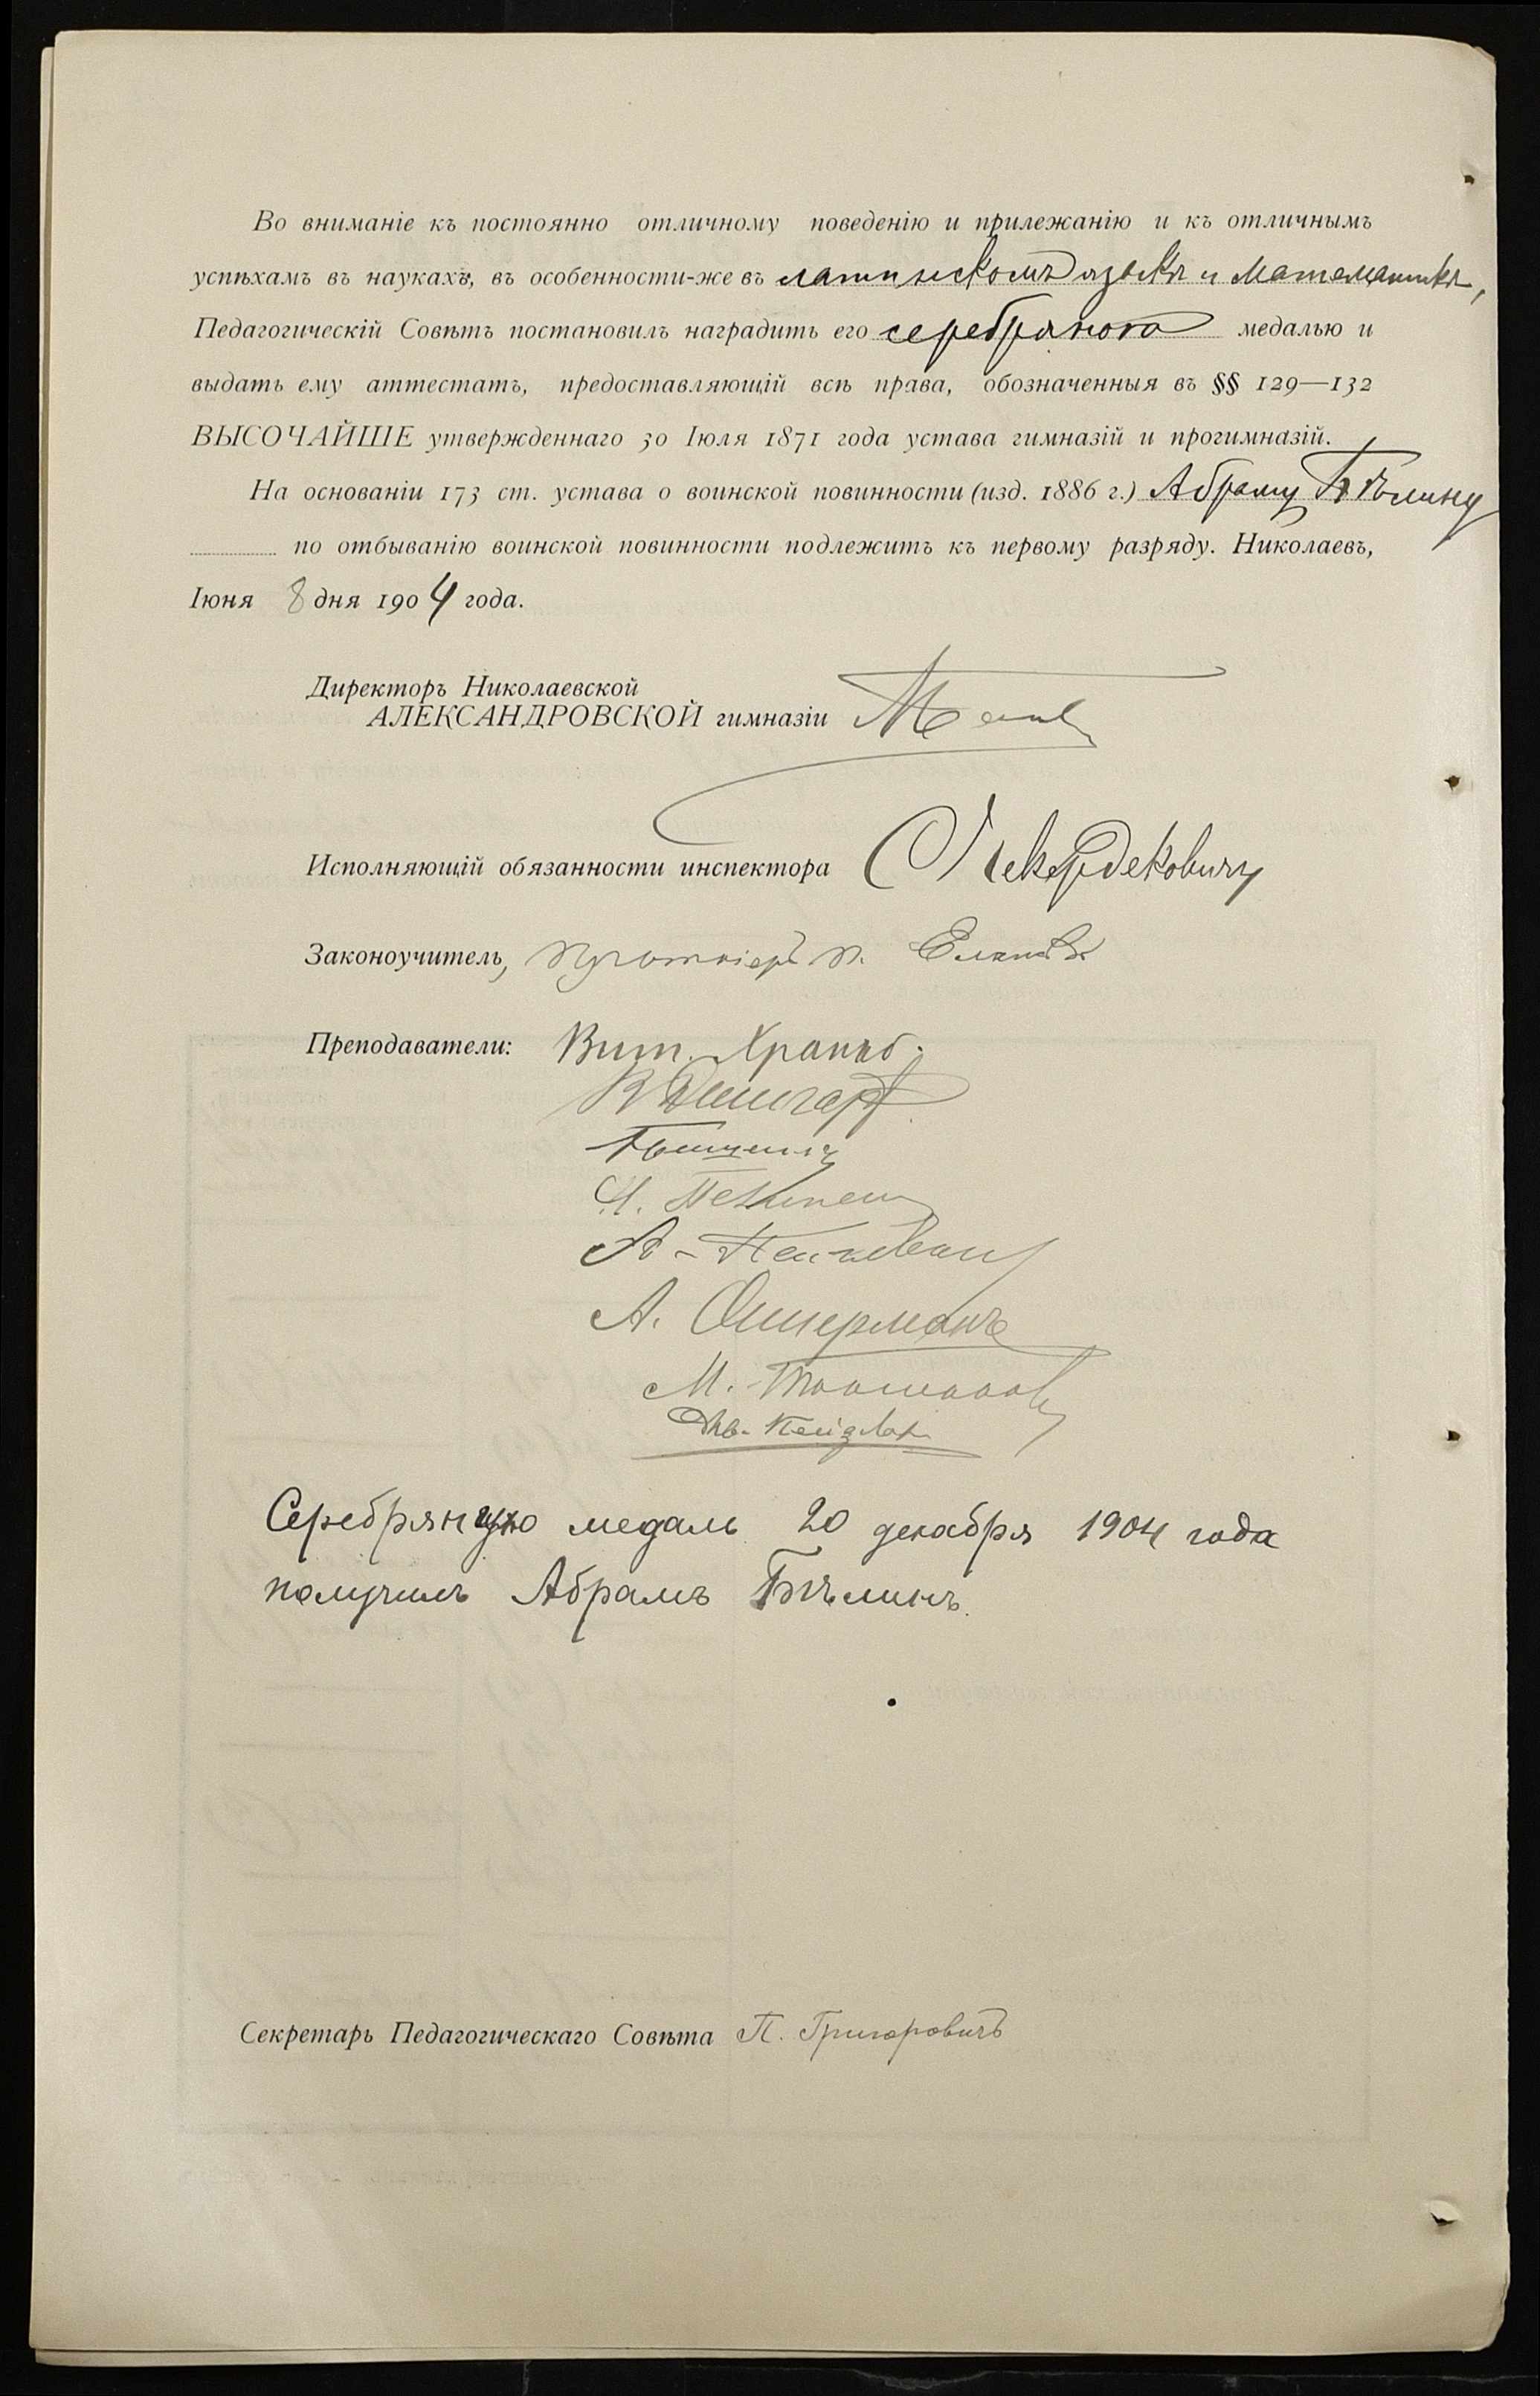 Во вниманіе къ постоянно отличному поведенію и прилежанію и къ отличнымъ
успѣхамъ въ наукахъ, въ особенности-же въ латинскомъ языкѣ и математикѣ,
Педагогическій Совѣтъ постановилъ наградить его серебряною медалью и
выдать ему аттестатъ, предоставляющій всѣ права, обозначенныя въ §§ 129—132
ВЫСОЧАЙШЕ утвержденнаго 30 Іюля 1871 года устава гимназій и прогимназій.
На основаніи 173 ст. устава о воинской повинности (изд. 1886 г.) Абраму Бѣлину
по отбыванію воинской повинности подлежитъ къ первому разряду. Николаевъ,
Іюня 8 дня 1904 года.
Директоръ Николаевской
АЛЕКСАНДРОВСКОЙ гимназіи
Исполняющій обязанности инспектора
Законоучитель, протоіерей
Преподаватели: Вит.
А.
М.
Серебряную медаль 20 декабря 1904 года
получилъ Абрамъ Бѣлинъ.
Секретарь Педагогическаго Совѣта П. Григоровичъ